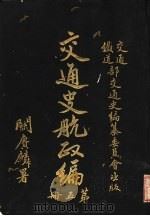 交通部
鐵道部交通史編纂委員會出版
交通史航政編
第五冊
關賡麟署